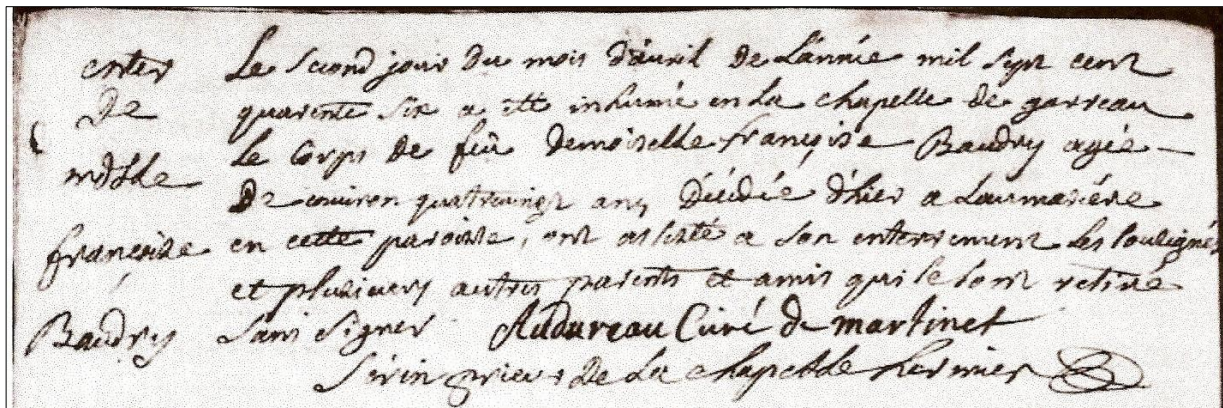 enter
De
mdslle
françoise
Baudry
Le second jour du mois d'avril de L'année mil sept cent
quarente six a été inhumé en La chapelle de garreau
Le Corps de feüe Demoiselle françoise Baudry agée
De environ quatrevingt ans Décédée d'hier a
en cette paroisse, ont assisté a son enterrement Les sousignés
et plusieurs autres parents et amis qui se sont retiré
sans signer Audureau Curé de martinet
Sérin prieur De La chapelle hermier